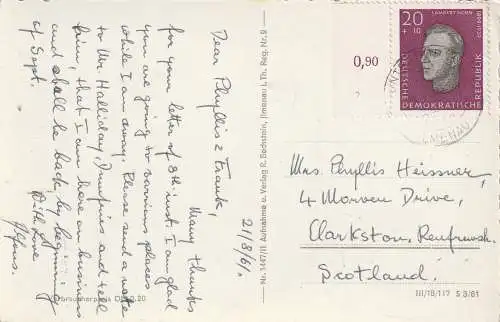 21/8/61.
Dear Phyllis & Frank,
Many thanks
for your letter of 8th inst. I am glad
you are going to various places
while I am away. Please send a note
to Mr. Halliday, Dumfries and tell
him, that I am here on business
and shall be back by beginning
of Sept.
With Love
No. 1447/11 Aufnahme u. Verlag R. Bechstein, Ilmenau i. Th. Reg. Nr. 9
0,90
LAMBERT HORN
20
+10
DEUTSCHE
DEMOKRATISCHE
REPUBLIK
Mrs. Phyllis Heissner,
4 Morven Drive,
Clarkston, Renfrewsh.
Scotland.
III/18/117 S 3/61